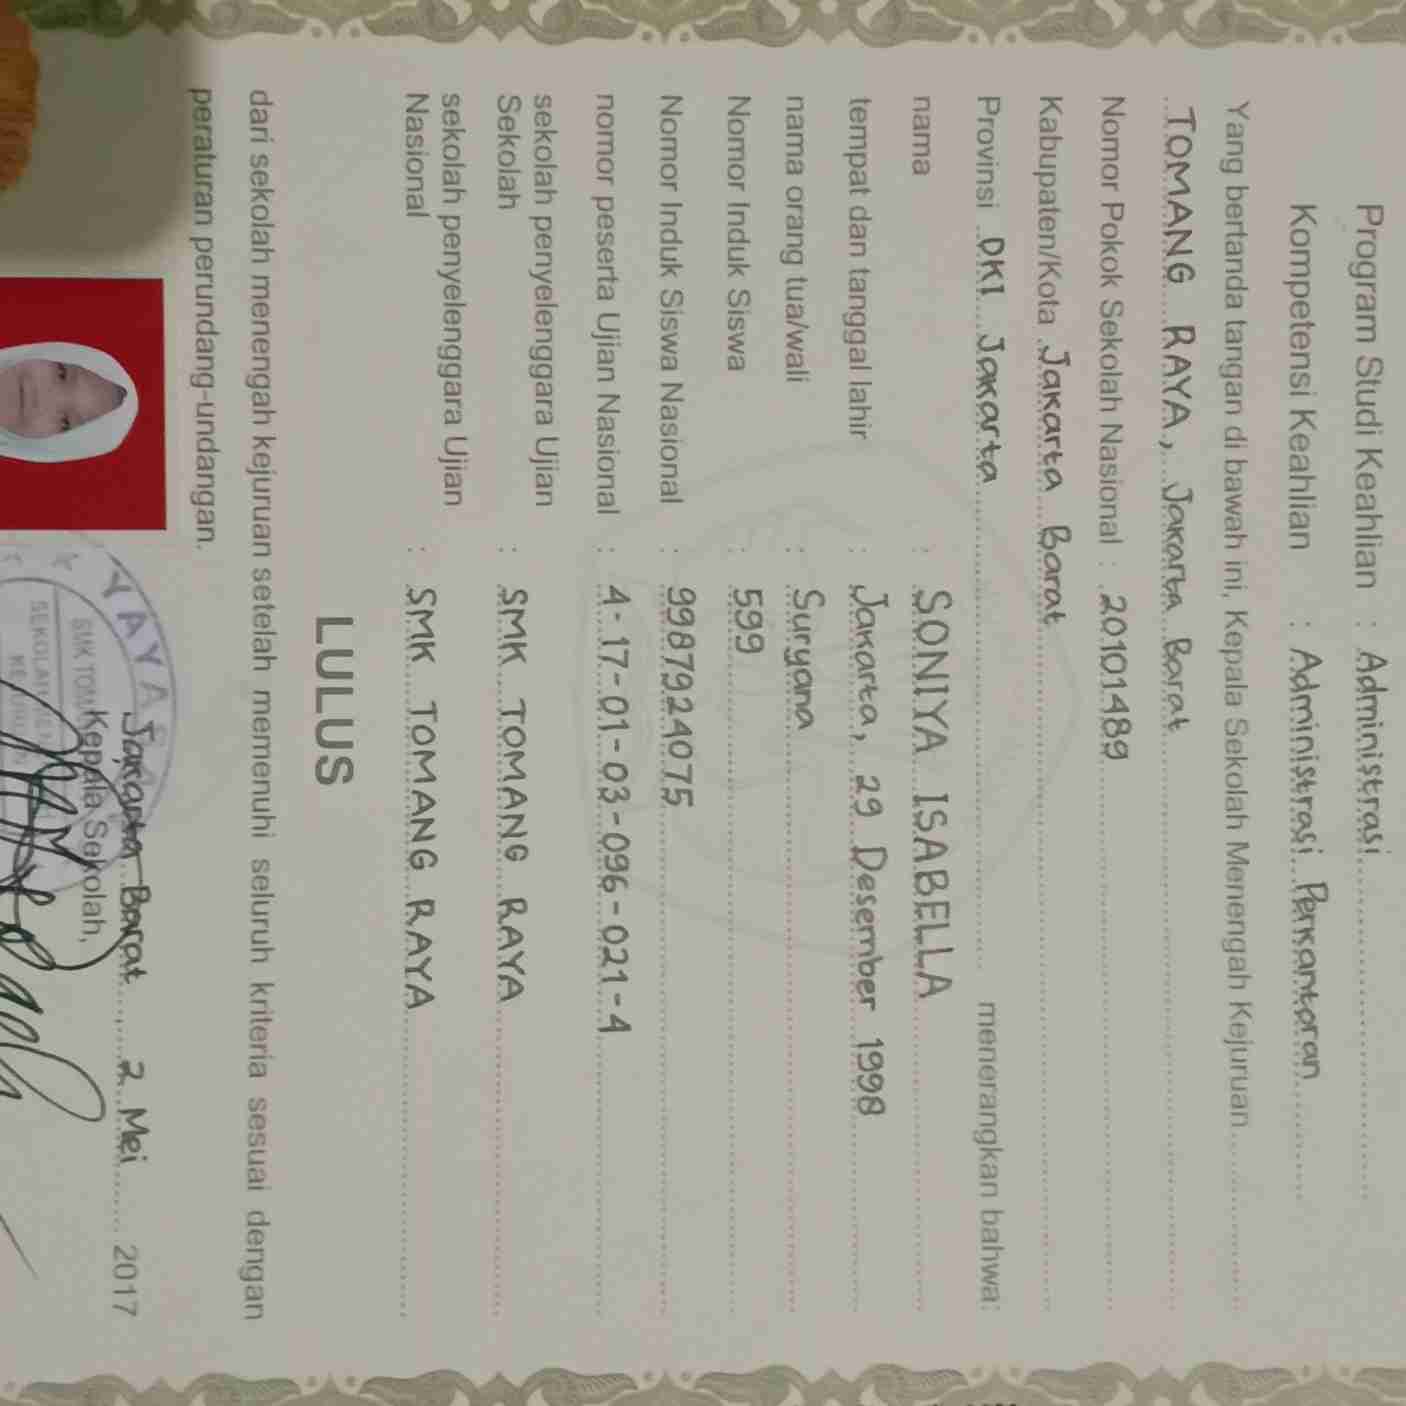 Program Studi Keahlian : Administrasi
Kompetensi Keahlian : Administrasi Perkantoran
Yang bertanda tangan di bawah ini, Kepala Sekolah Menengah Kejuruan
TOMANG RAYA, Jakarta Barat
Nomor Pokok Sekolah Nasional : 20101489
Kabupaten/Kota Jakarta Barat
Provinsi DKI Jakarta menerangkan bahwa:
nama : SONIYA ISABELLA
tempat dan tanggal lahir : Jakarta, 29 Desember 1998
nama orang tua/wali : Suryana
Nomor Induk Siswa : 599
Nomor Induk Siswa Nasional : 9987924075
nomor peserta Ujian Nasional : 4-17-01-03-096-021-4
sekolah penyelenggara Ujian
Sekolah : SMK TOMANG RAYA
sekolah penyelenggara Ujian
Nasional : SMK TOMANG RAYA
LULUS
dari sekolah menengah kejuruan setelah memenuhi seluruh kriteria sesuai dengan
peraturan perundang-undangan.
Jakarta Barat, 2 Mei 2017
Kepala Sekolah,
SMK TOM